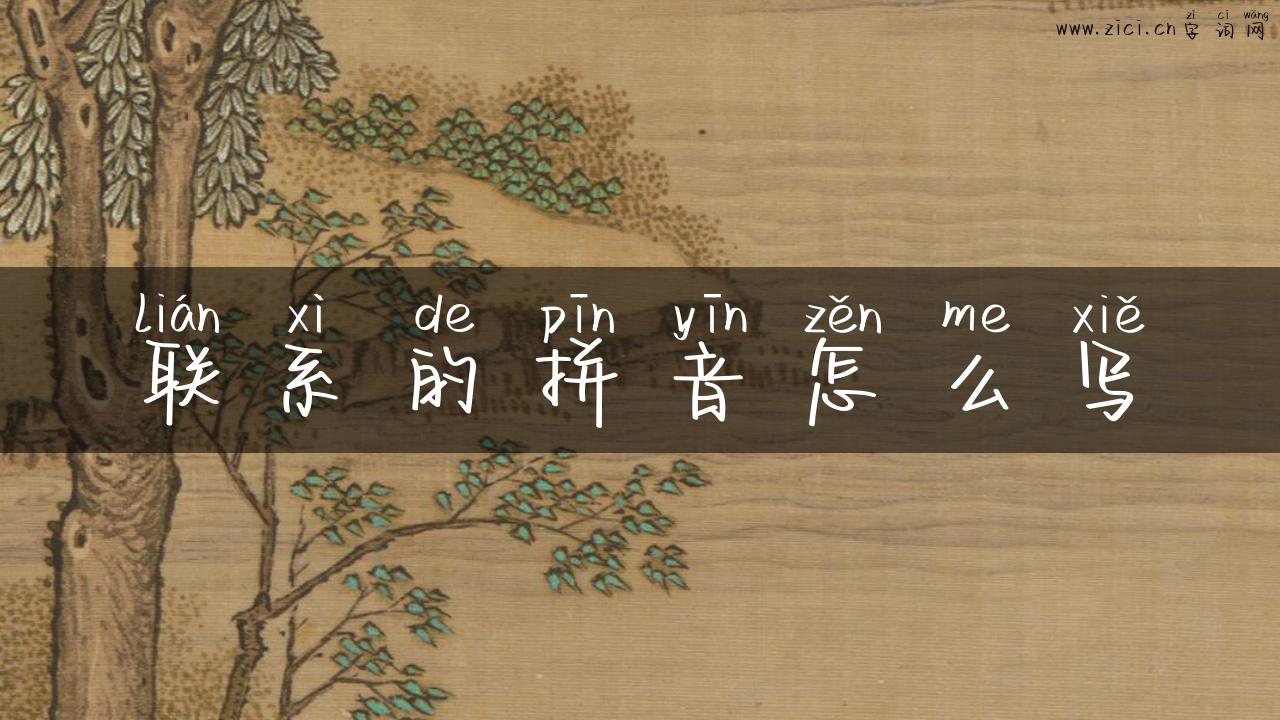 zì cí wǎng
www.zici.cn 字 词 网
lián xì de pīn yīn zěn me xiě
联 系 的 拼 音 怎 么 写